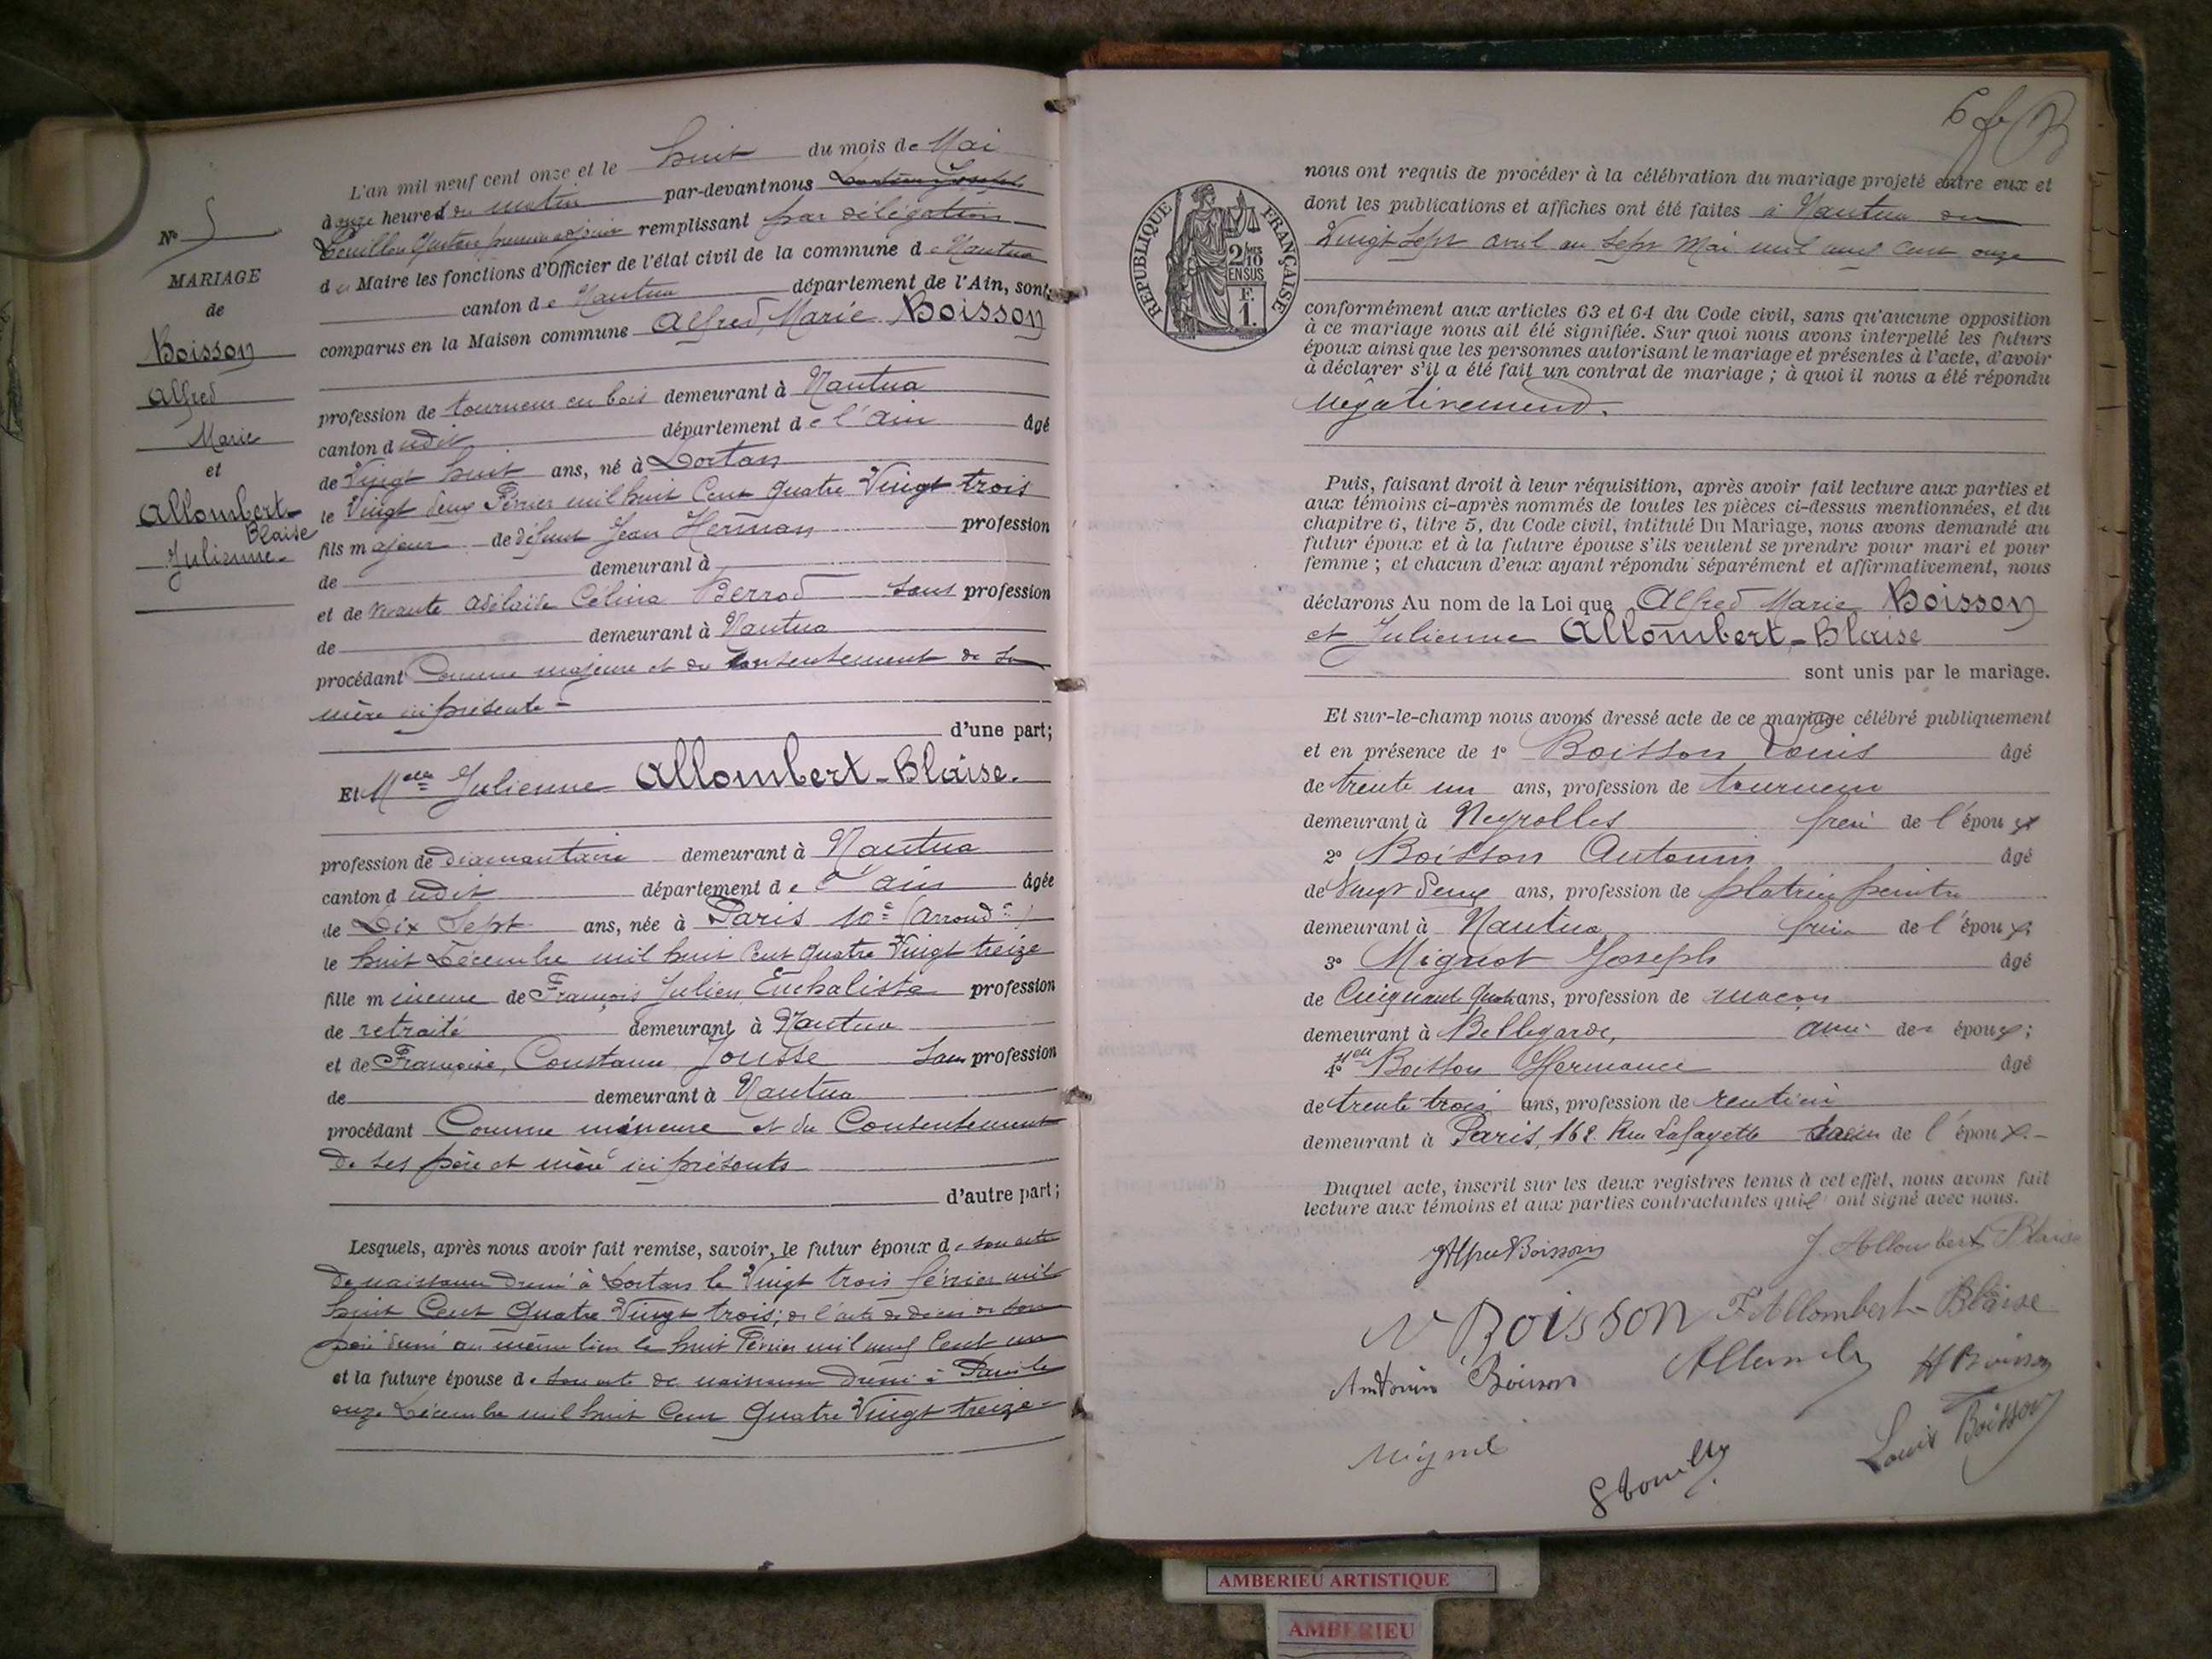 N° 5
MARIAGE
de
Boisson
Alfred
Marie
et
Allombert-
Blaise
Julienne
L'an mil neuf cent onze et le huit du mois de Mai
à onze heures du matin par-devant nous
Gustave premier adjoint remplissant par délégation
du Maire les fonctions d'Officier de l'état civil de la commune de Nantua
canton de Nantua département de l'Ain, sont
comparus en la Maison commune Alfred, Marie Boisson
profession de tourneur en bois demeurant à Nantua
canton dudit département de l'Ain âgé
de Vingt huit ans, né à Dortan
le Vingt deux Février mil huit Cent quatre Vingt trois
fils majeur de défunt Jean Herman profession
de demeurant à
et de vivante Adélaïde Célina Berrod sans profession
de demeurant à Nantua
procédant Comme majeur et du consentement de sa
mère ici présente -
d'une part;
Et Melle Julienne Allombert-Blaise.
profession de diamantaire demeurant à Nantua
canton dudit département de l'Ain âgée
de Dix Sept ans, née à Paris 10e (arrondt)
le huit Décembre mil huit Cent quatre Vingt treize
fille mineure de François Julien Euchaliste profession
de retraité demeurant à Nantua
et de Françoise, Constance Jousse Sans profession
de demeurant à Nantua
procédant Comme mineure et du Consentement
de ses père et mère ici présents
d'autre part;
Lesquels, après nous avoir fait remise, savoir, le futur époux de son acte
de naissance dressé à Dortan le Vingt trois février mil
huit Cent quatre Vingt trois; de l'acte de décès de son
père dressé au même lieu le huit Février mil neuf Cent un
et la future épouse de son acte de naissance dressé à Paris le
onze Décembre mil huit Cent quatre Vingt treize -
nous ont requis de procéder à la célébration du mariage projeté entre eux et
dont les publications et affiches ont été faites à Nantua du
Vingt Sept avril au Sept Mai mil neuf Cent onze
REPUBLIQUE FRANÇAISE
2/10
EN SUS
F.
1.
conformément aux articles 63 et 64 du Code civil, sans qu'aucune opposition
à ce mariage nous ait été signifiée. Sur quoi nous avons interpellé les futurs
époux ainsi que les personnes autorisant le mariage et présentes à l'acte, d'avoir
à déclarer s'il a été fait un contrat de mariage; à quoi il nous a été répondu
négativement.
Puis, faisant droit à leur réquisition, après avoir fait lecture aux parties et
aux témoins ci-après nommés de toutes les pièces ci-dessus mentionnées, et du
chapitre 6, titre 5, du Code civil, intitulé Du Mariage, nous avons demandé au
futur époux et à la future épouse s'ils veulent se prendre pour mari et pour
femme; et chacun d'eux ayant répondu séparément et affirmativement, nous
déclarons Au nom de la Loi que Alfred Marie Boisson
et Julienne Allombert-Blaise
sont unis par le mariage.
Et sur-le-champ nous avons dressé acte de ce mariage célébré publiquement
et en présence de 1° Boisson Louis âgé
de trente un ans, profession de tourneur
demeurant à Neyrolles frère de l'époux
2° Boisson Antonin âgé
de Vingt deux ans, profession de platrier peintre
demeurant à Nantua frère de l'époux;
3° Mignot Joseph âgé
de Cinquante quatre ans, profession de maçon
demeurant à Bellegarde, ami des époux;
4° Melle Boisson Hermance âgé
de trente trois ans, profession de rentière
demeurant à Paris, 168 Rue Lafayette de l'époux.-
Duquel acte, inscrit sur les deux registres tenus à cet effet, nous avons fait
lecture aux témoins et aux parties contractantes qui ont signé avec nous.
Alfred Boisson J. Allombert Blaise
Vve BOISSON F Allombert-Blaise
Antonin Boisson H Boisson
Louis Boisson
AMBERIEU ARTISTIQUE
AMBERIEU